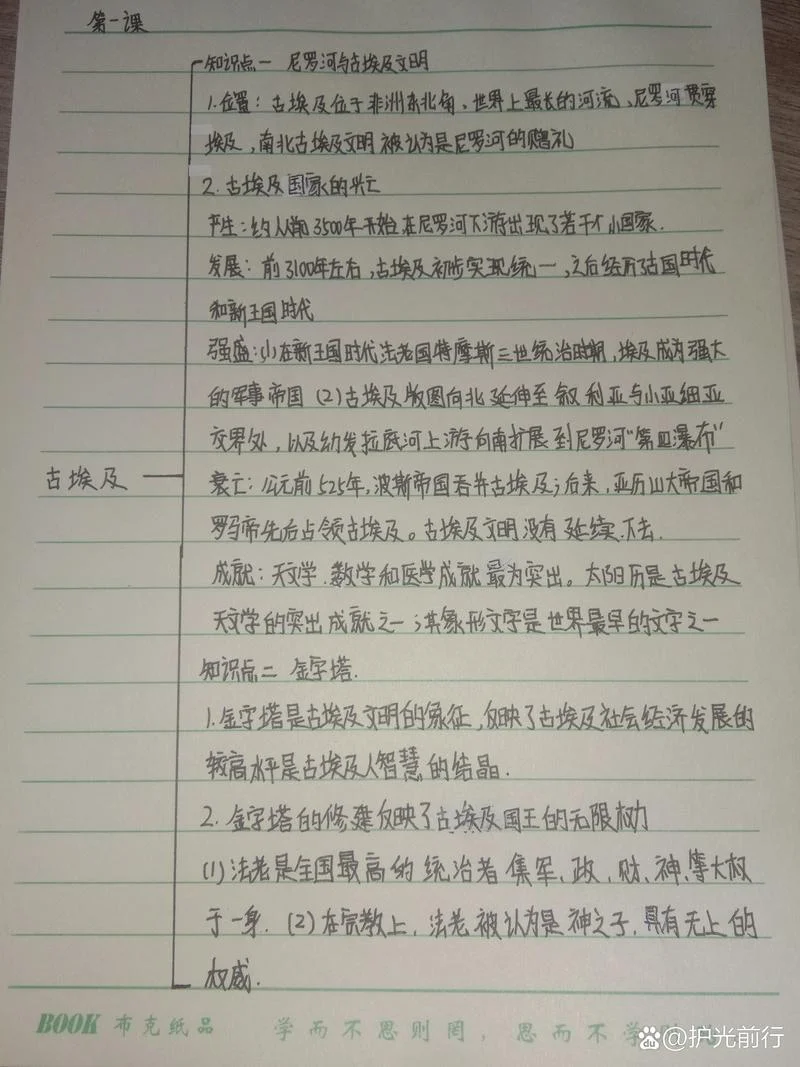 第一课
知识点一 尼罗河与古埃及文明
1.位置：古埃及位于非洲东北角、世界上最长的河流、尼罗河贯穿
埃及，南北古埃及文明被认为是尼罗河的赐礼
2.古埃及国家的兴亡
产生：约从前3500年开始在尼罗河下游出现了若干个小国家.
发展：前3100年左右，古埃及初步实现统一，之后经历了古国时代
和新王国时代
强盛：(1)在新王国时代法老国特摩斯三世统治时期，埃及成为强大
的军事帝国 (2)古埃及版图向北延伸至叙利亚与小亚细亚
交界处，以及幼发拉底河上游向南扩展到尼罗河"第四瀑布"
古埃及
衰亡：公元前525年，波斯帝国吞并古埃及；后来，亚历山大帝国和
罗马帝先后占领古埃及。古埃及文明没有延续下去.
成就：天文学.数学和医学成就最为突出。太阳历是古埃及
天文学的突出成就之一；其象形文字是世界最早的文字之一
知识点二 金字塔.
1.金字塔是古埃及文明的象征，反映了古埃及社会经济发展的
较高水平是古埃及人智慧的结晶.
2.金字塔的修建反映了古埃及国王的无限权力
(1)法老是全国最高的统治者集军、政、财、神、等大权
于一身.(2)在宗教上，法老被认为是神之子，具有无上的
权威.
BOOK 布克纸品 学而不思则罔，思而不学
Baidu @护光前行